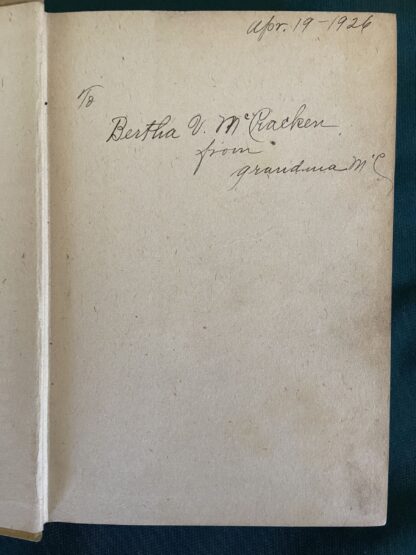 Apr. 19-1926
To
Bertha V. McCracken
from
grandma Mc.